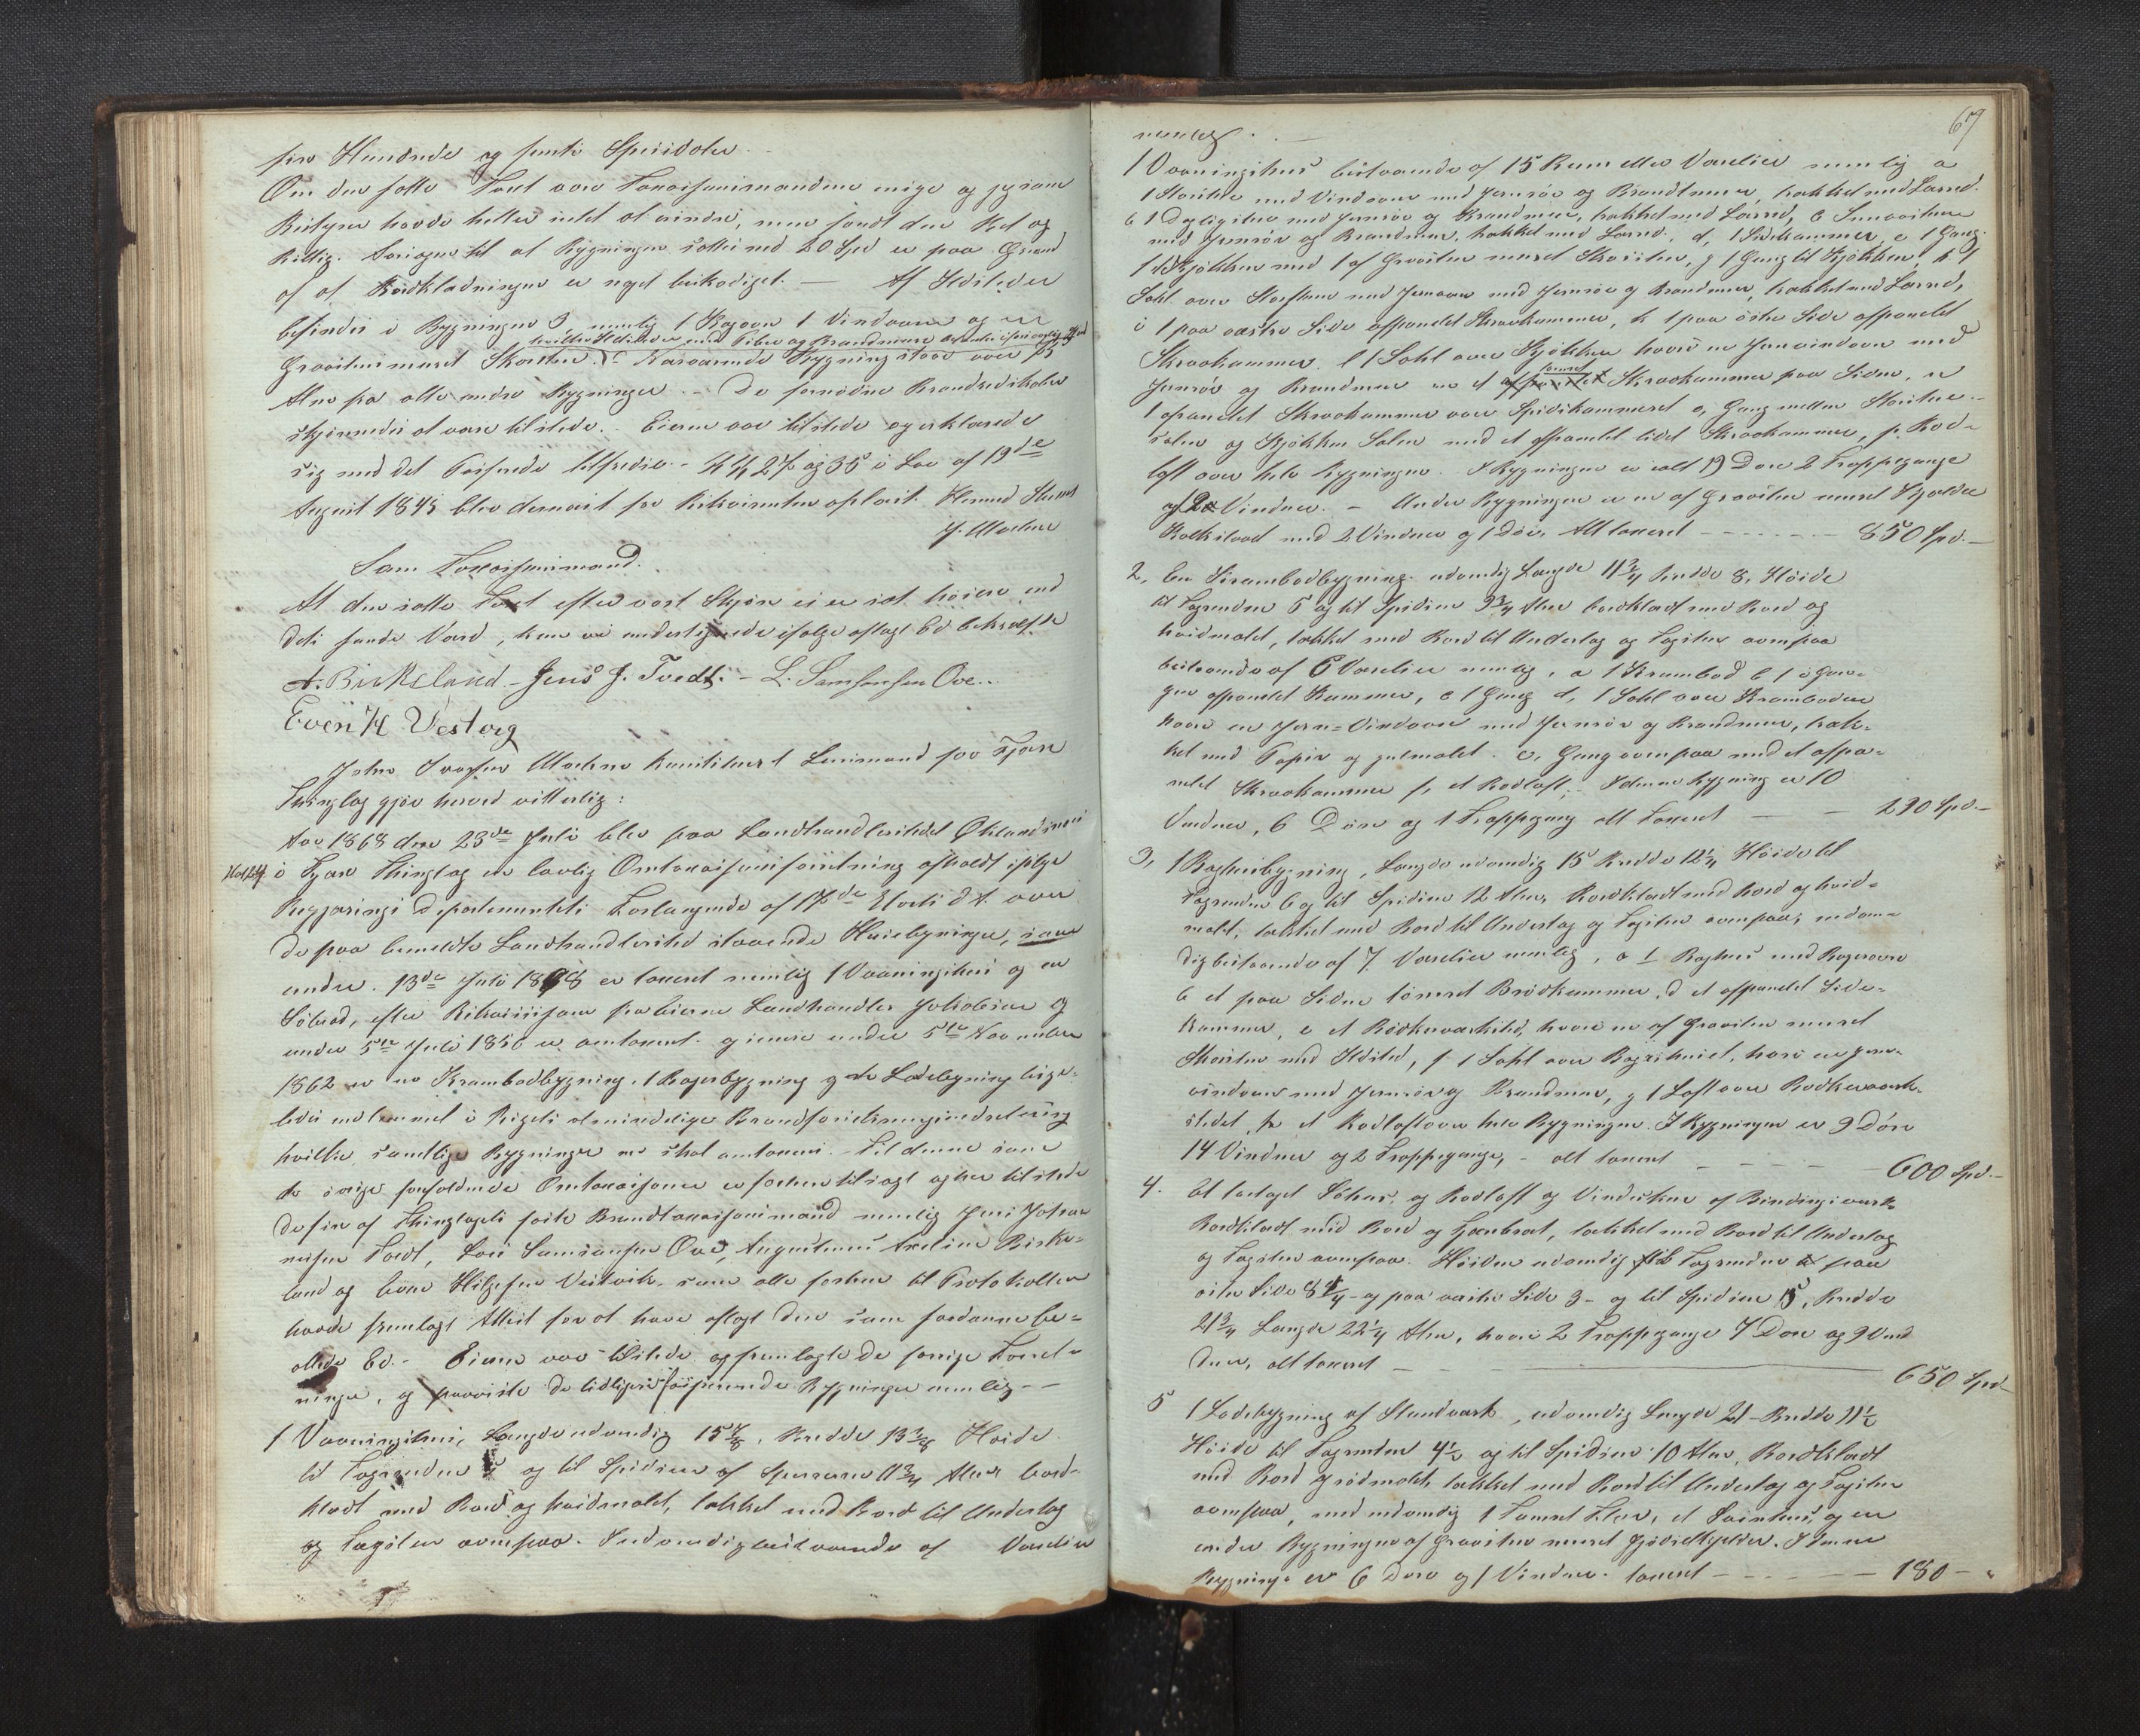 fire Hundrede og femti Speciedaler.
Om den satte Taxt vare Taxasjonsmændene enige og jeg som
Bestyrer havde heller intet at erindre, men fandt den Ret og
Rigtig. Aarsagen til at Bygningen sattes ned 20 Spd er paa Grund
af at Bordklædningen er noget beskadiget. — Af Ildsteder
befindes i Bygningen 3 nemlig 1 Bagovn 1 Vindovn og en
hvilke Ildsteder med Piber og Brandmure
Graastensmuret Skorsten. Nærværende Bygning staar over 15
Alen fra alle andre Bygninger. — De fornødne Brandredskaber
skjønnedes at være tilstede. Eieren var tilstede og erklærede
sig med det Passerede tilfreds. — §§ 27 og 35 i Lov af 19de
August 1845 blev dernæst for Rekvirenten oplæst. Hermed Sluttet
J. Mælen
Som Taxasjonsmænd.
At den satte Taxt efter vort Skjøn ei er sat høiere end
dets sande Værd, kan vi undertegnede ifølge aflagt Ed bekræfte
A. Birkeland – Jens J. Tvedt. – L. Samsonsen Ove.
Even H Vestvig
John Ivarsen Mælen konstitueret Lensmand for Fjære
Thinglag gjør herved vitterlig:
Aar 1868 den 23de Juli blev paa Landhandlerstedet Økland
i Fjære Thinglag en lovlig Omtaxasjonsforretning afholdt ifølge
Regjerings Departementets Forlangende af 17de Marts d A. over
de paa bemeldte Landhandlersted staaende Huusbygninger, som
under 13de Juli 1848 er taxeret nemlig 1 Vaaningshus og en
Søbod, efter Rekvisisjon fra Eieren Landhandler Jakobsen og
under 5te Juli 1856 er omtaxeret. og senere under 5te November
1862 er en Krambodbygning, 1 Bagerbygning og en Ladebygning lige-
ledes indlemmet i Rigets almindelige Brandforsikringsindretning
hvilke samtlige Bygninger nu skal omtaxeres. Til denne som
de øvrige forefaldende Omtaxasjoner er forhen tilsagt og her tilstede
de fire af Thinglagets faste Brandtaxasjonsmænd nemlig Jens Johan-
nesen Tvedt, Lars Samsonsen Ove, Augustinus Birke-
land og Even Helgesen Vestvik, som alle forhen til Protokollen
havde fremlagt Attest for at have aflagt den som saadanne be-
falede Ed. – Eieren var tilstede og fremlagte de forrige Forret-
ninger, og paaviste de tidligere forsikrede Bygninger nemlig —
1 Vaaningshus, Længde udvendig 15 7/8, Bredde 13 7/8 Høide
til Tagrenden og til Spidsen af Sperrerne 11 3/4 Alen bord-
klædt med Bord og hvidmalet, tækket med Bord til Underlag
og Tagsten ovenpaa. Indvendig bestaaende af Værelser
69
nemlig.
1 Vaaningshus bestaaende af 15 Rum eller Værelser nemlig a
1 Storstue med Vindovn med Jernrør og Brandmur, trækket med Lærred.
b 1 Dagligstue med Jernrør og Brandmur, trækket med Lærred, c
med Jernrør og Brandmur, trækket med Lærred. d, 1 Sidekammer e 1 Gang.
1 Kjøkken med 1 af Graasten muret Skorsten, g 1 Gang til Kjøkken, h 1
Sahl over Storstuen med Jernovn med Jernrør og Brandmur, trækket med Lærred,
i 1 paa vestre Side afpanelet Skraakammer, k 1 paa østre Side afpanelet
Skraakammer. l 1 Sahl over Kjøkken hvori en Jernvindovn med
Jernrør og Brandmur m et Skraakammer paa Siden, n
1 afpanelet Skraakammer over Spisekammeret o, Gang mellem Storstue-
salen og Kjøkken Salen med et afpanelet lidet Skraakammer, p. Rod-
loft over hele Bygningen. I Bygningen er ialt 19 Døre 2 Trappegange
og Vinduer. – Under Bygningen er en af Graasten muret Kjælder
med 2 Vinduer og 1 Dør. Alt taxeret – – – – 850 Spd. –
2, En Krambodbygning. udvendig Længde 11 3/4 Bredde 8, Høide
til Tagrenden 5 og til Spidsen 9 3/4 Alen bordklædt med Bord og
hvidmalet, tækket med Bord til Underlag og Tagsten ovenpaa
bestaaende af 6 Værelser nemlig, a 1 Krambod b 1 i Gan-
gen afpanelet Kammer, c 1 Gang d, 1 Sahl over Kramboden
hvori en Jern-Vindovn med Jernrør og Brandmur, træk-
ket med Papir og gulmalet. e, Gang ovenpaa med et afpa-
nelet Skraakammer f, et Rodloft. I denne Bygning er 10
Vinduer, 6 Døre og 1 Trappegang alt taxeret – – 290 Spd. –
3, 1 Baghusbygning, Længde udvendig 15 Bredde 12 1/4 Høide til
Tagrenden 6 og til Spidsen 12 Alen, Bordklædt med bord og hvid-
malt, tækket med Bord til Underlag og Tagsten ovenpaa; indven-
dig bestaaende af 7 Værelser nemlig, a 1 Baghus med Bagerovn
b et paa Siden Brødkammer, d et afpanelet Side-
kammer, e et Bødkerværksted, hvori en af Graasten muret
Skorsten med Ildsted, f 1 Sahl over Bagerhuset, hvori en Jern-
vindovn med Jernrør og Brandmur, g 1 Loft over Bødkerværk-
stedet, h et Rodloft over hele Bygningen. I Bygningen er 9 Døre
14 Vinduer og 2 Trappegange, – alt taxeret – – – – 600 Spd. –
4. Et toetages Søhus, og Rodloft og Vindskur af Bindingsværk
Bordklædt med Bord og tækket med Bord til Underlag
og Tagsten ovenpaa. Høiden udvendig til Tagrenden paa
østre Side 8 1/4 – og paa vestre Side 3 – og til Spidsen 15, Bredde
21 3/4 Længde 22 1/4 Alen, hvori 2 Trappegange 7 Døre og 9 Vin-
duer, alt taxeret — 650 Spd –
5 1 Ladebygning af Standværk, udvendig Længde 21 – Bredde 11 1/2
Høide til Tagrenden 4 1/2 og til Spidsen 10 Alen, Bordklædt
med Bord og rødmalet, tækket med Bord til Underlag og Tagsten
ovenpaa, med indvendig 1 et og en
under Bygningen af Graasten muret Gjødselkjelder. I denne
Bygning er 6 Døre og 1 Vindue. taxeret – – – – 180 – "